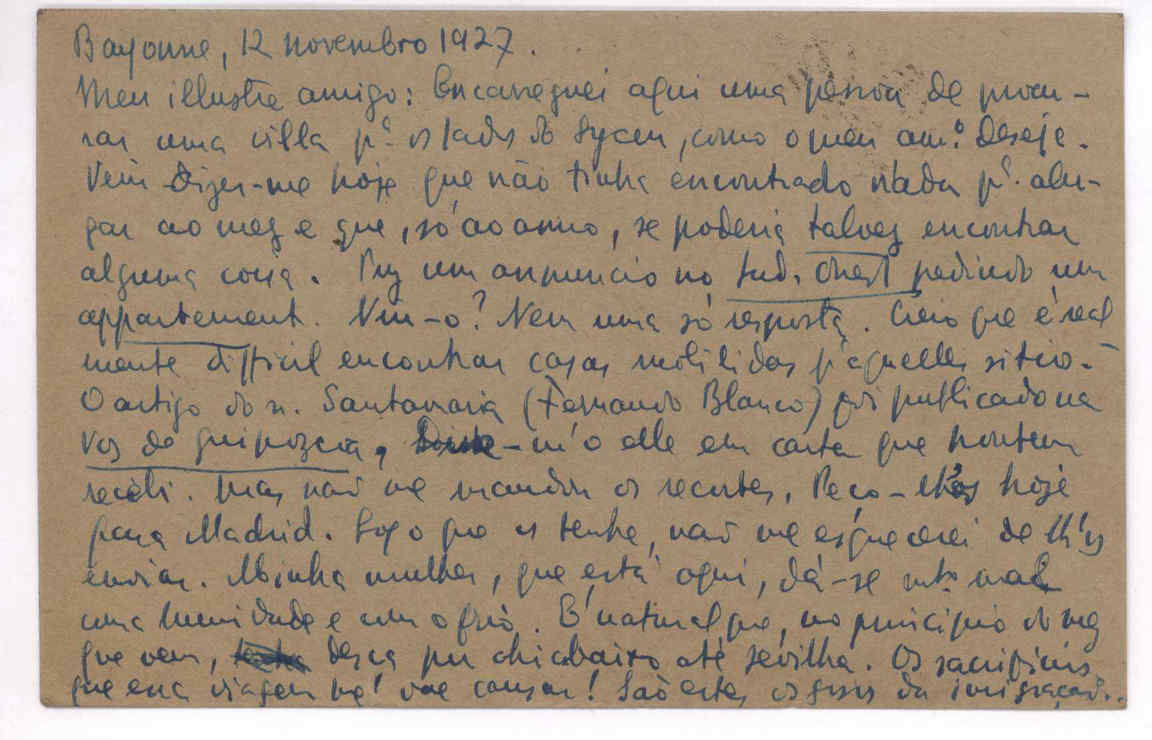 Bayonne, 12 novembro 1927.
Meu illustre amigo: Encarreguei aqui uma pessoa de procu-
rar uma villa pª os lados do Lyceu, como o meu amº deseja.
Vem dizer-me hoje que não tinha encontrado nada pª. alu-
gar ao mez e que, só ao anno, se poderia talvez encontrar
alguma coisa. Puz um annuncio no Sud. Ouest pedindo um
appartement. Viu-o? Nem uma só resposta. Creio que é real
mente difficil encontrar casas mobiladas p'aquelles sitios-
O artigo do sr. Santamaria (Fernando Blanco) foi publicado na
Voz de Guipuzcoa, -m'o elle em carta que hontem
recebi. Mas não me mandou os recortes. Peço-lh'os hoje
para Madrid. Logo que os tenha, não me esquecerei de lh'os
enviar. Minha mulher, que está aqui, dá-se mtº mal
com a humidade e com o frio. E' natural que, no principio do mez
que vem, desça por ahi abaixo até Sevilha. Os sacrificios
que essa viagem me vae causar! São estes os gosos da imigração.